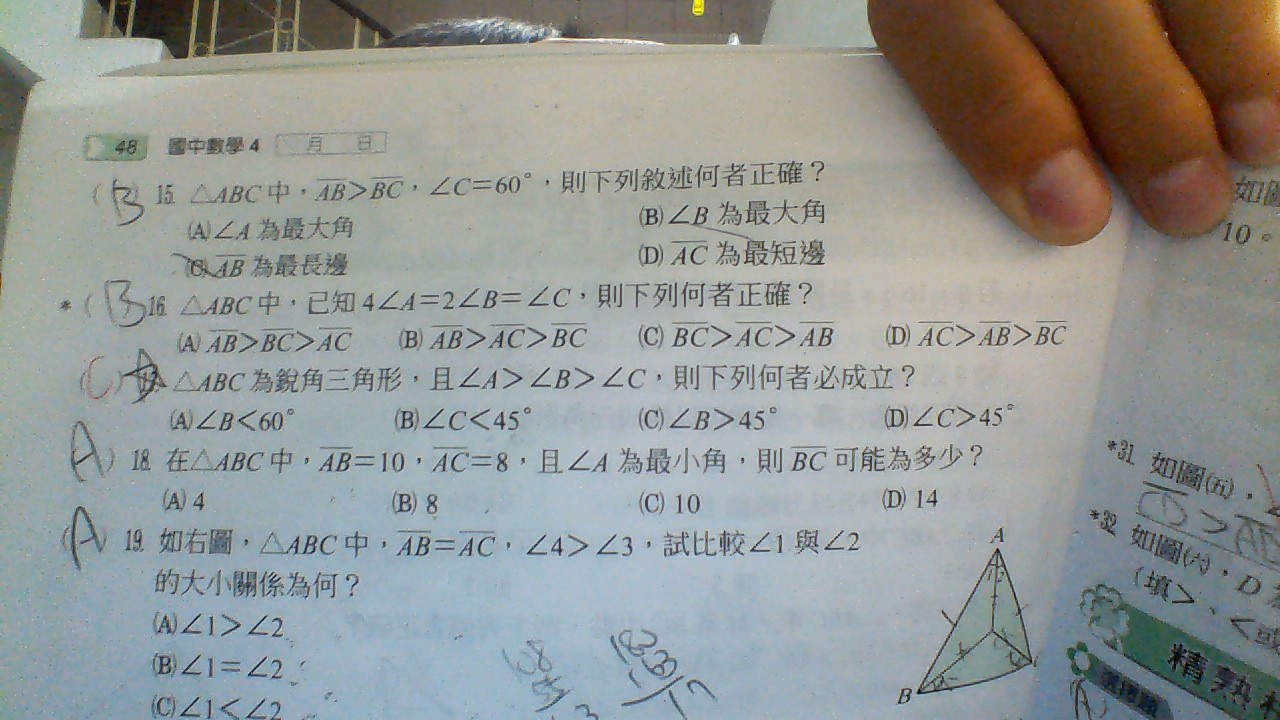 48 國中數學 4 月 日
(B) 15. △ABC 中，AB＞BC，∠C＝60°，則下列敘述何者正確？
(A)∠A 為最大角 (B)∠B 為最大角
(C) AB 為最長邊 (D) AC 為最短邊
* (B) 16. △ABC 中，已知 4∠A＝2∠B＝∠C，則下列何者正確？
(A) AB＞BC＞AC (B) AB＞AC＞BC (C) BC＞AC＞AB (D) AC＞AB＞BC
(C) △ABC 為銳角三角形，且∠A＞∠B＞∠C，則下列何者必成立？
(A)∠B＜60° (B)∠C＜45° (C)∠B＞45° (D)∠C＞45°
(A) 18. 在△ABC 中，AB＝10，AC＝8，且∠A 為最小角，則 BC 可能為多少？
(A) 4 (B) 8 (C) 10 (D) 14
(A) 19. 如右圖，△ABC 中，AB＝AC，∠4＞∠3，試比較∠1 與∠2
的大小關係為何？
(A)∠1＞∠2
(B)∠1＝∠2
(C)∠1＜∠2
A
B
如圖
10。
*31. 如圖(五)，
CD＞AB
*32. 如圖(六)，D
(填＞、＜或
精熟